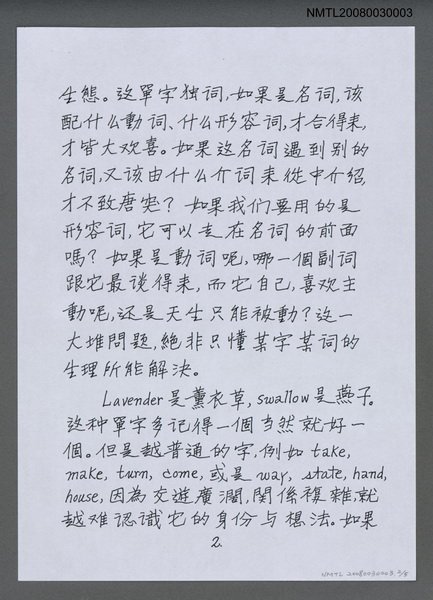 NMTL20080030003
生態。这單字独词,如果是名词,该
配什么動词、什么形容词,才合得来,
才皆大欢喜。如果这名词遇到别的
名词,又该由什么介词来從中介绍,
才不致唐突？如果我们要用的是
形容词,它可以走在名词的前面
嗎？如果是動词呢,哪一個副词
跟它最谈得来,而它自己,喜欢主
動呢,还是天生只能被動？这一
大堆問题,絕非只懂某字某词的
生理所能解決。
Lavender是薰衣草,swallow是燕子。
这种單字多记得一個当然就好一
個。但是越普通的字,例如take,
make, turn, come,或是way, state, hand,
house,因為交遊廣濶,関係複雜就
越难認識它的身份与想法。如果
2.
NMTL 20080030003. 2/5